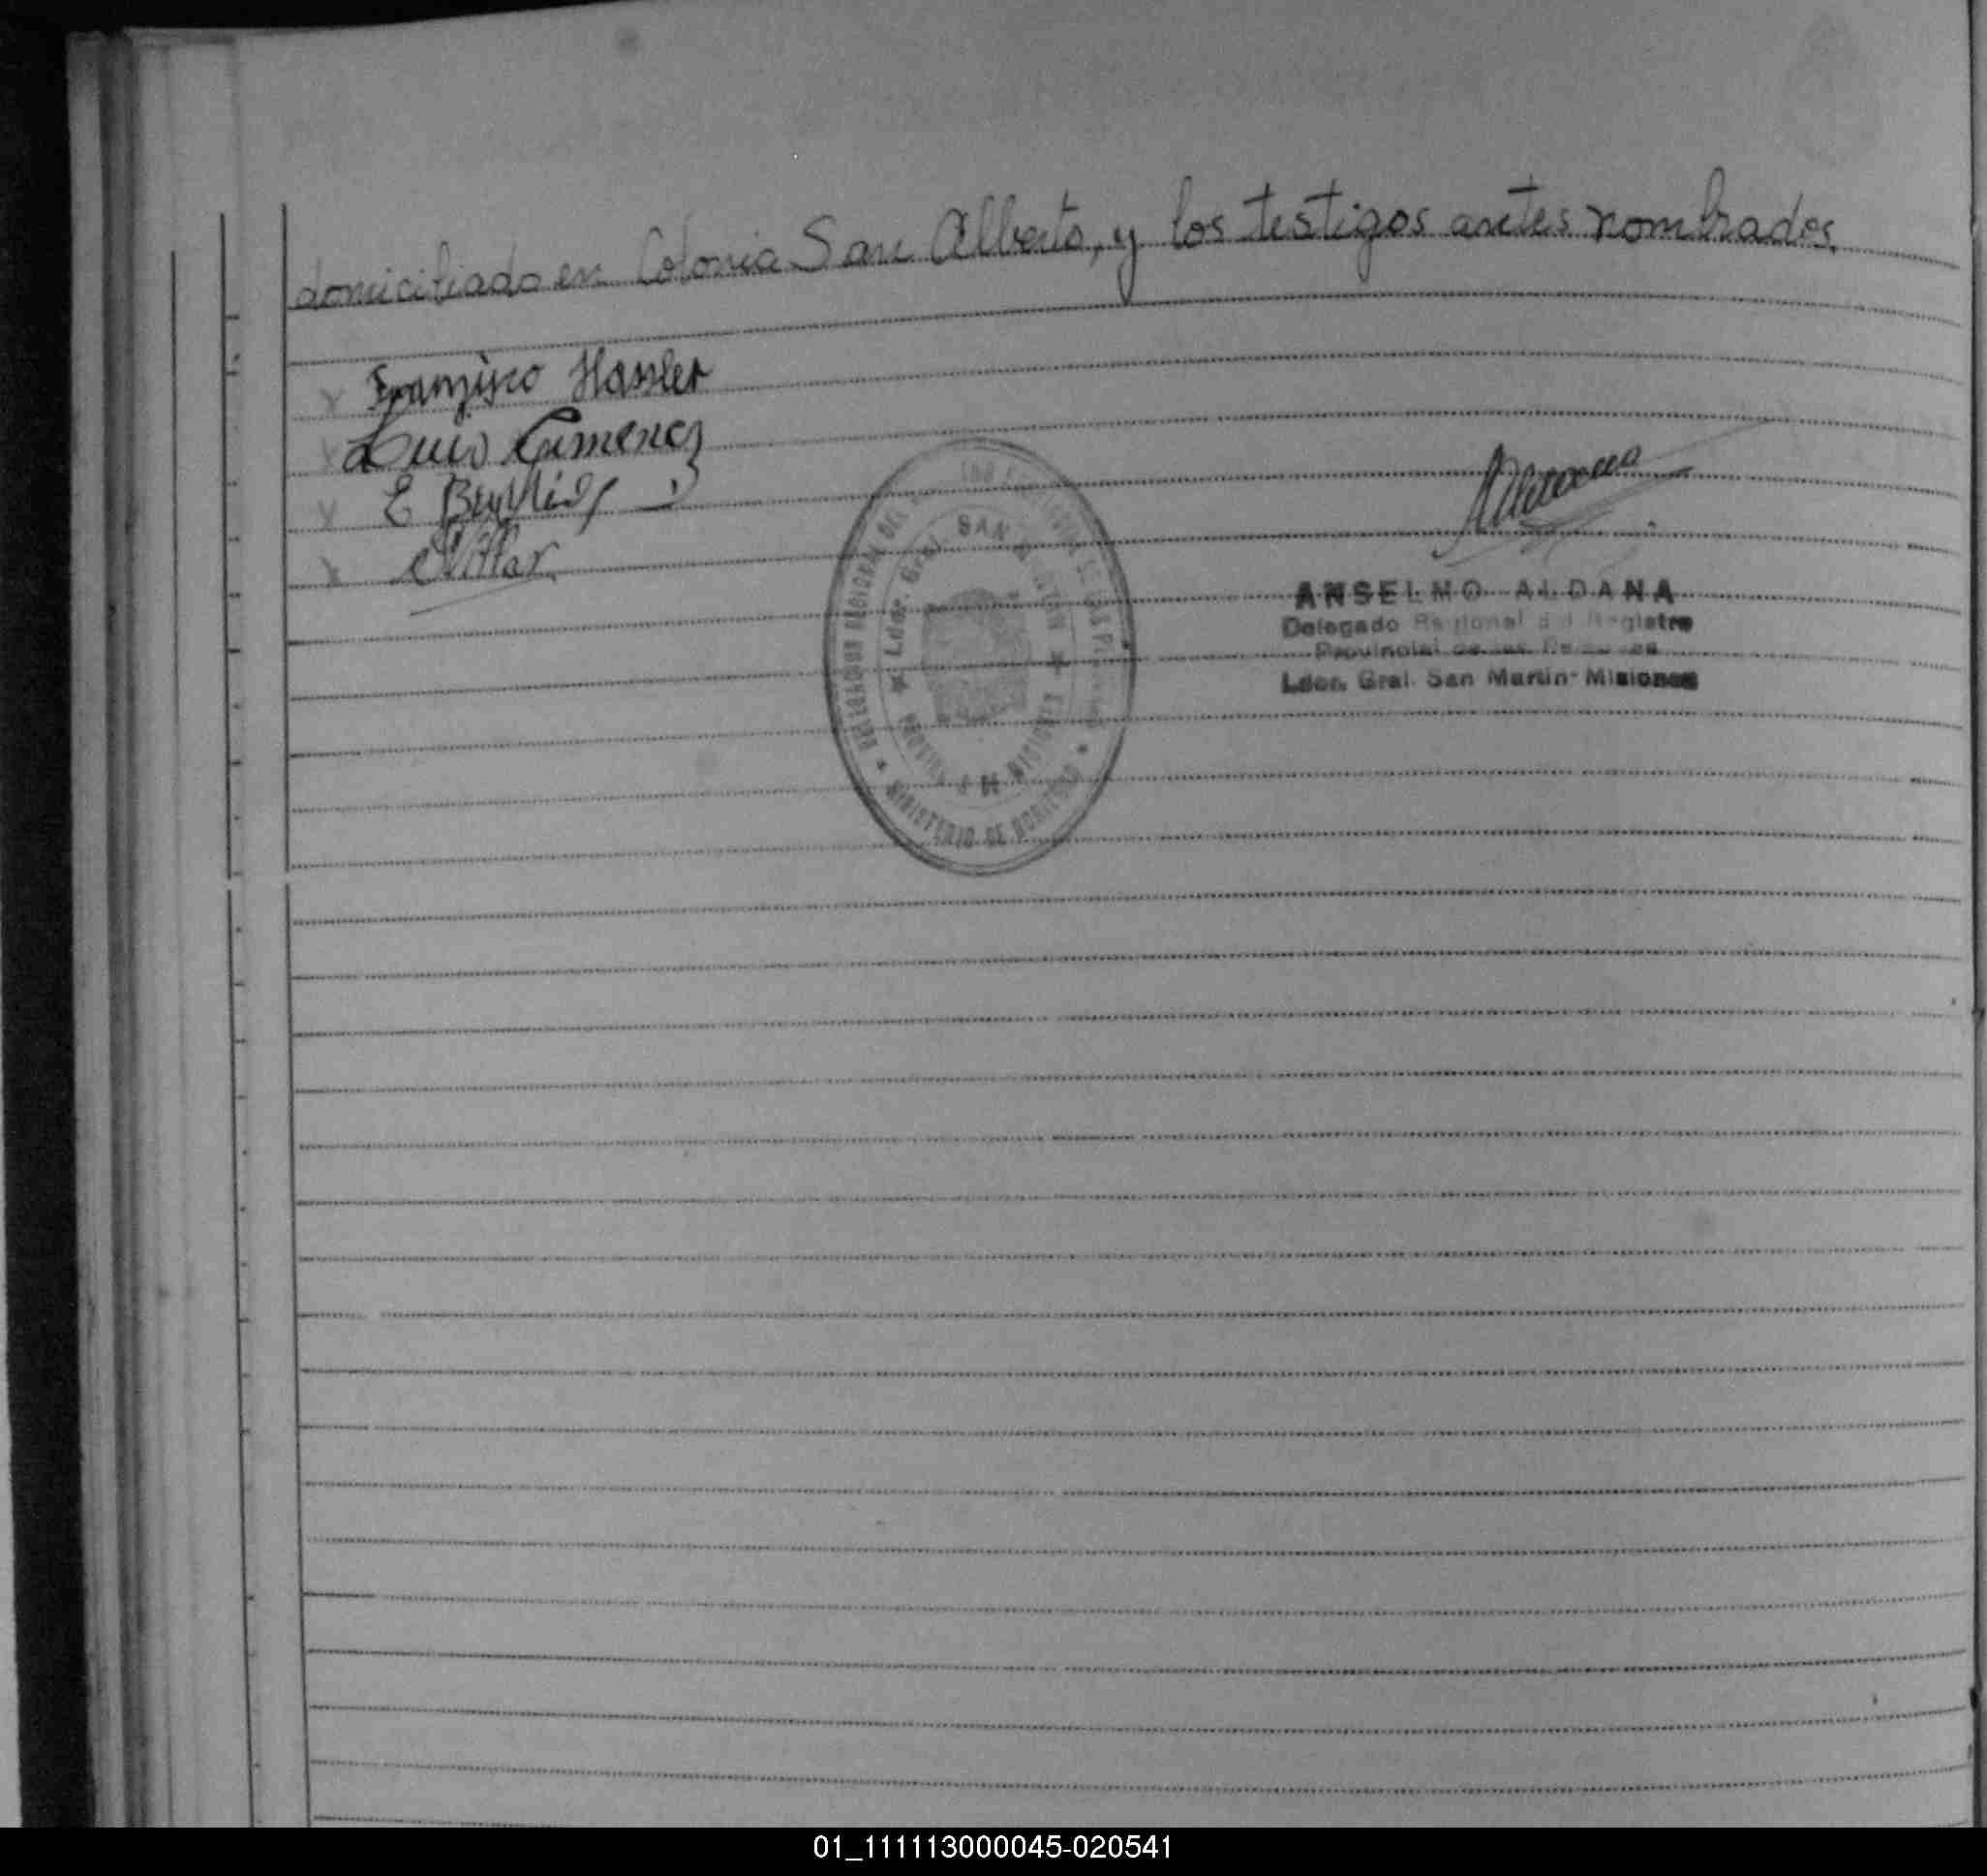 domiciliado en Colonia San Alberto, y los testigos antes nombrados.
Franzisco Hassler
Luis Gimenez
E
Villar
DELEGACION REGIONAL DEL
MINISTERIO DE GOBIERNO
Ldor. Gral. SAN MARTIN
PROVINCIA DE MISIONES
ANSELMO ALDANA
Delegado Regional del Registro
Provincial de las Personas
Ldor. Gral. San Martin - Misiones
01_111113000045-020541